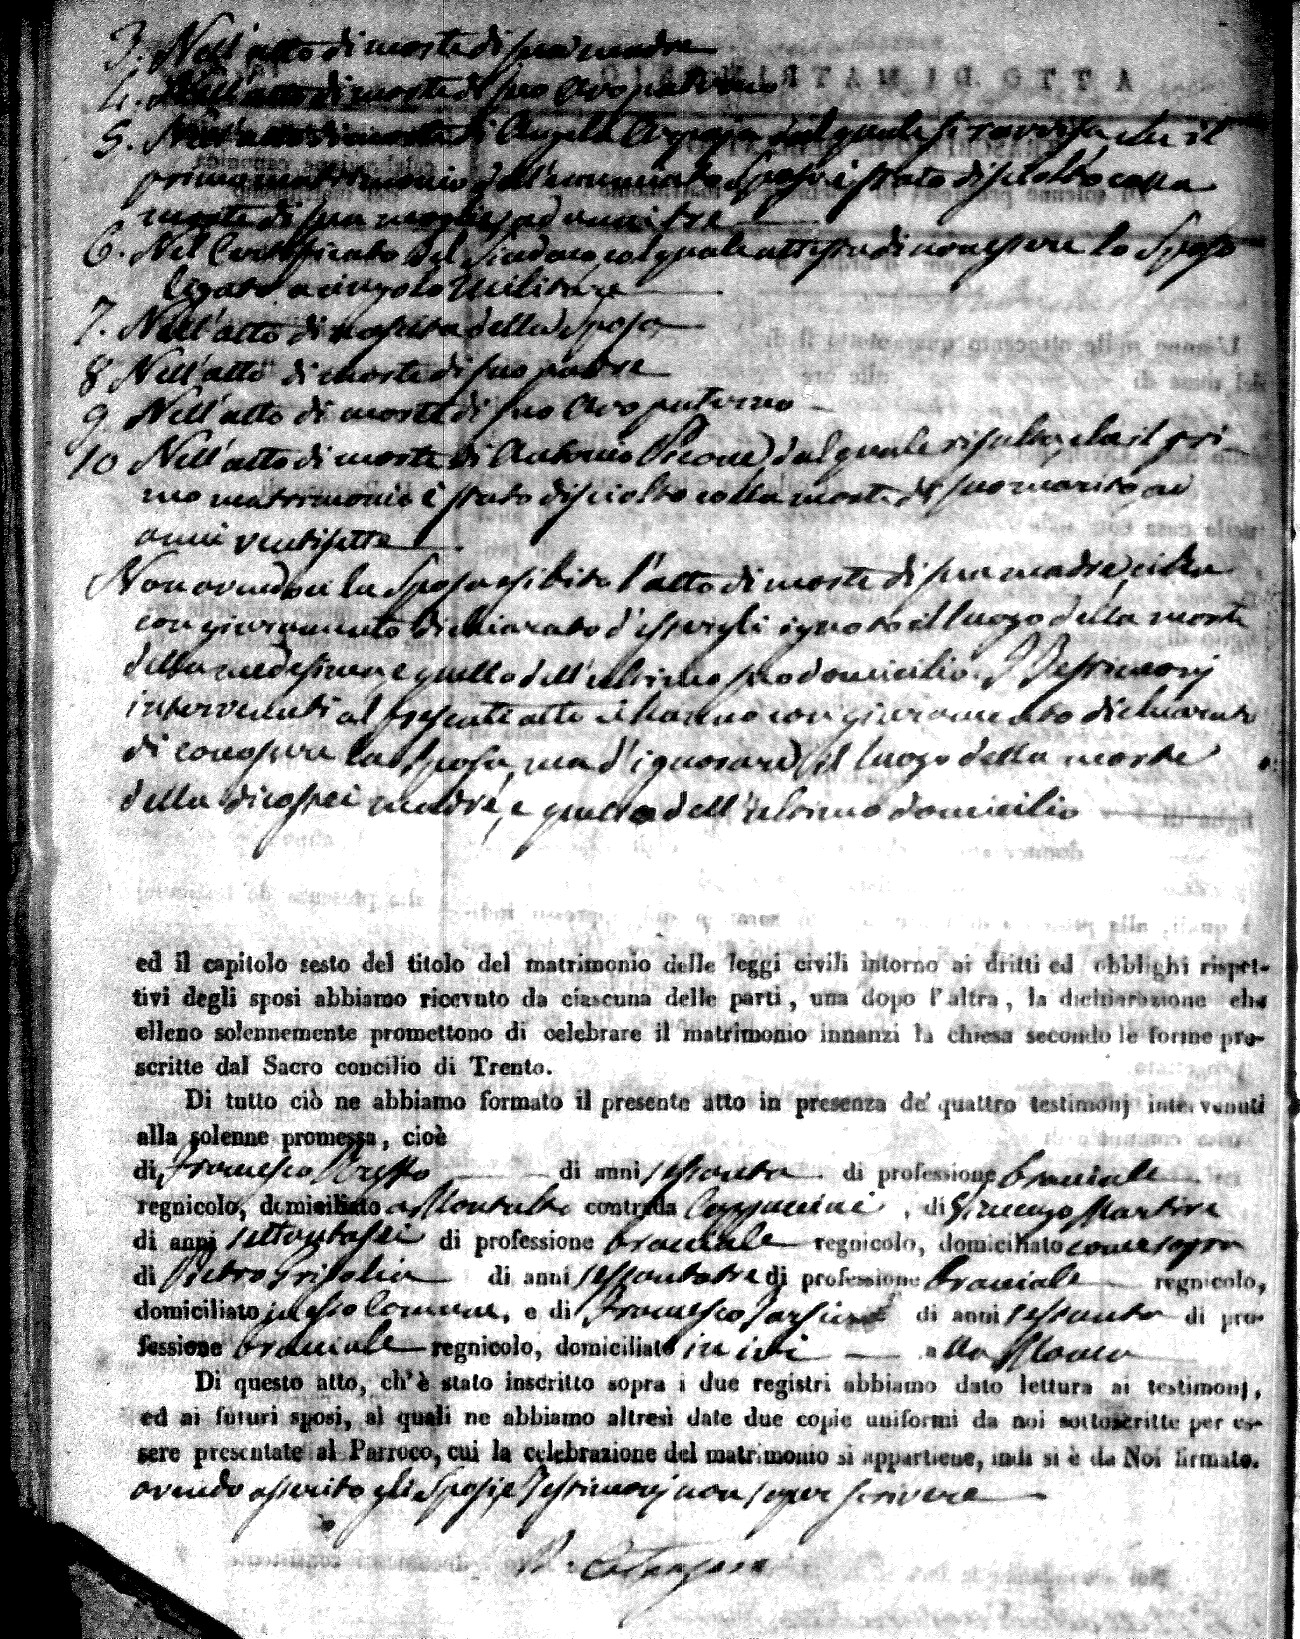 3. Nell'atto di morte di sua madre
4. Nell'atto di morte di suo Avo paterno
5. Nell'atto di morte di Angela dal quale si ravvisa, che il
primo matrimonio dell'enunciato Sposo è stato disciolto colla
morte di sua moglie, ad anni tre
6. Nel Certificato del Sindaco, col quale attesta di non essere lo Sposo
legato a cingolo Militare
7. Nell'atto di nascita della Sposa
8 Nell'atto di morte di suo padre
9 Nell'atto di morte di suo Avo paterno
10 Nell'atto di morte di Antonio dal quale risulta, che il pri-
mo matrimonio è stato disciolto colla morte di suo marito ad
anni ventisette
Non avendo la Sposa esibito l'atto di morte di sua madre, ci ha
con giuramento dichiarato d'essergli ignoto il luogo della morte
della medesima, e quello dell'ultimo suo domicilio. I Testimonj
intervenuti al presente atto ci hanno con giuramento dichiarato
di conoscere la Sposa, ma d'ignorare il luogo della morte
della di costei madre, e quello dell'ultimo domicilio
ed il capitolo sesto del titolo del matrimonio delle leggi civili intorno ai dritti ed obblighi rispet-
tivi degli sposi abbiamo ricevuto da ciascuna delle parti, una dopo l'altra, la dichiarazione che
elleno solennemente promettono di celebrare il matrimonio innanzi la chiesa secondo le forme pre-
scritte dal Sacro concilio di Trento.
Di tutto ciò ne abbiamo formato il presente atto in presenza de' quattro testimonj intervenuti
alla solenne promessa, cioè
di Francesco di anni sessanta di professione bracciale
regnicolo, domiciliato a Montalto contrada Cappuccini, di Vincenzo Martire
di anni settantasei di professione bracciale regnicolo, domiciliato come sopra
di Pietro Grisolia di anni sessantatre di professione bracciale regnicolo,
domiciliato in essa Comune, e di Francesco di anni sessanta di pro-
fessione bracciale regnicolo, domiciliato in ivi
Di questo atto, ch'è stato inscritto sopra i due registri abbiamo dato lettura ai testimonj,
ed ai futuri sposi, ai quali ne abbiamo altresì date due copie uniformi da noi sottoscritte per es-
sere presentate al Parroco, cui la celebrazione del matrimonio si appartiene, indi si è da Noi firmato.
avendo asserito gli Sposi, e Testimonj non saper scrivere